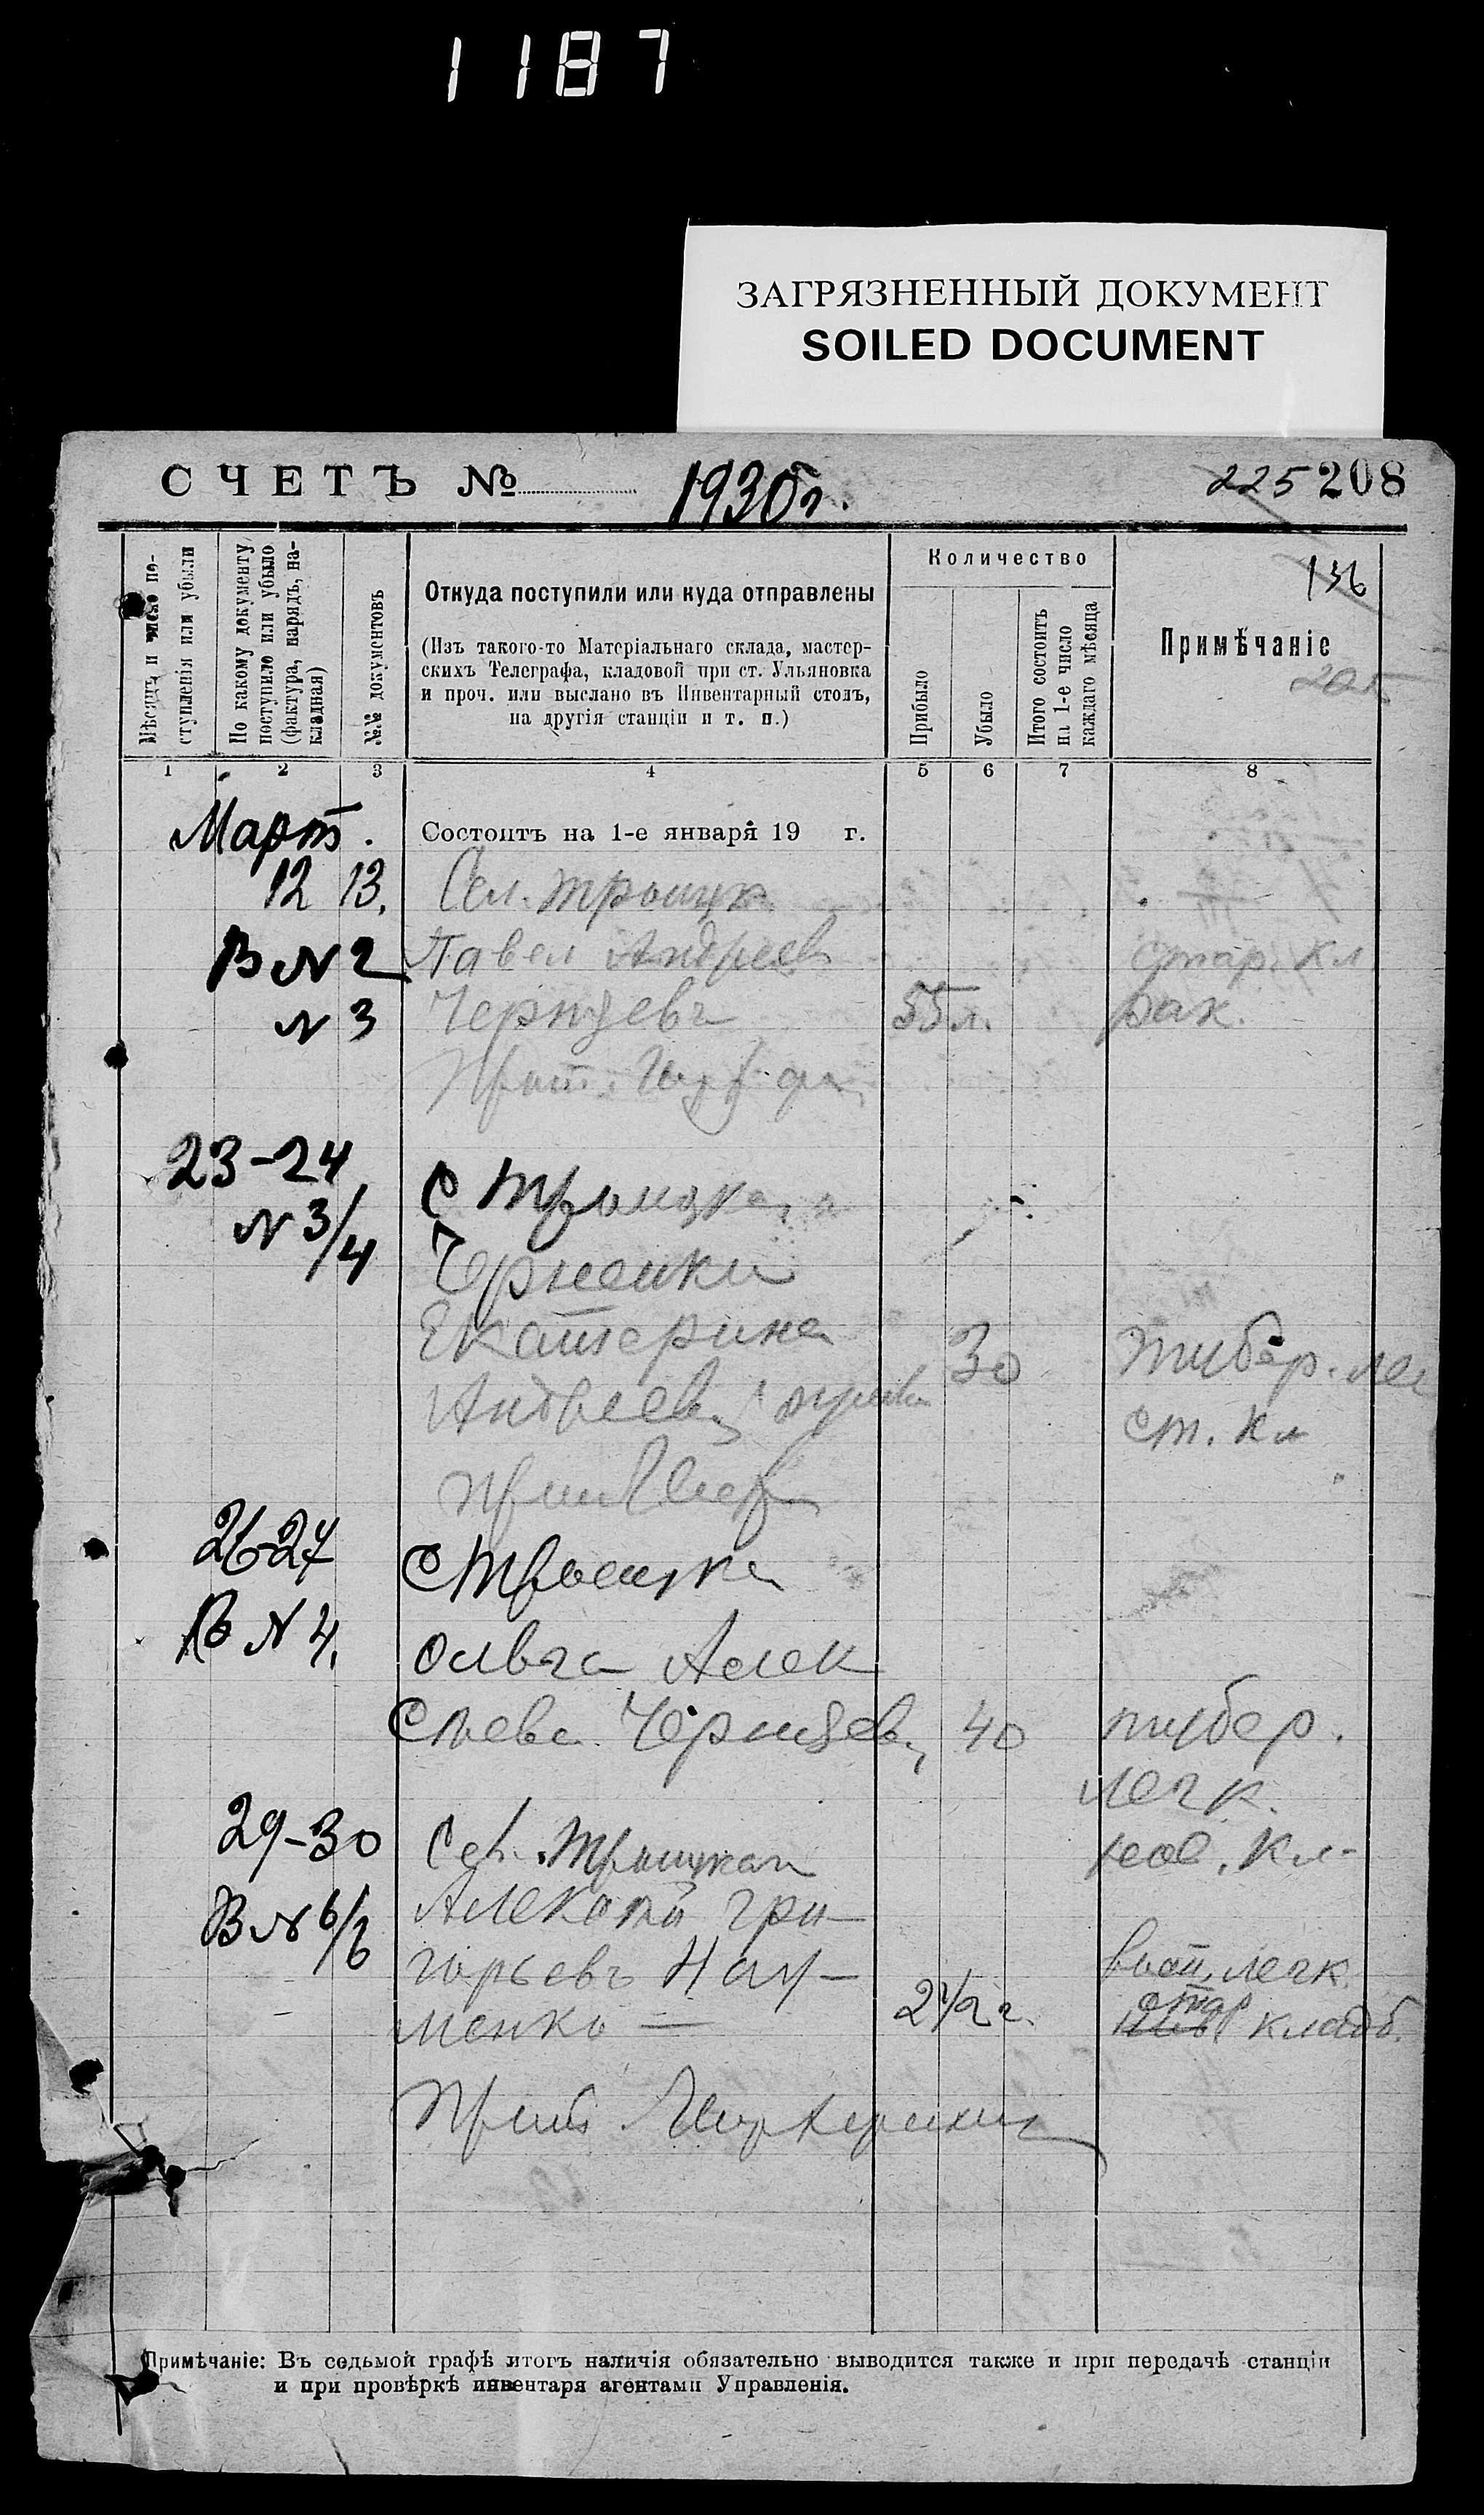 1187
ЗАГРЯЗНЕННЫЙ ДОКУМЕНТ
SOILED DOCUMENT
СЧЕТЪ № 1930 г. 225 208
136
205
Мѣсяцъ и число по-
ступленія или убыли
По какому документу
поступило или убыло
(фактура, нарядъ, на-
кладная)
№№ документовъ
Откуда поступили или куда отправлены
(Изъ такого-то Матеріальнаго склада, мастер-
скихъ Телеграфа, кладовой при ст. Ульяновка
и проч. или выслано въ Инвентарный столъ,
на другія станціи и т. п.)
Количество
Прибыло
Убыло
Итого состоитъ
на 1-е число
каждаго мѣсяца
Примѣчаніе
1 2 3 4 5 6 7 8
Март. Состоитъ на 1-е января 19 г.
12 13. Сел. Троицк
В N 2 Павел Андреев стар. кл
N 3 Чернцевъ 55 л. рак.
23-24 С Троицка
N 3/4
Екатерина 30 тубер. лег
Андреев ст. кл
26-27 С Троицка
В N 4. Ольга Алек
сѣева Чернцев 40 тубер.
легк.
29-30 Сел. Троицкая нов. кл-
В N 6/6 Алексѣй Гри-
горьевъ Нау- восп. легк
менко — 2 1/2 г. стар кладб.
Примѣчаніе: Въ седьмой графѣ итогъ наличія обязательно выводится также и при передачѣ станціи
и при провѣркѣ инвентаря агентами Управленія.